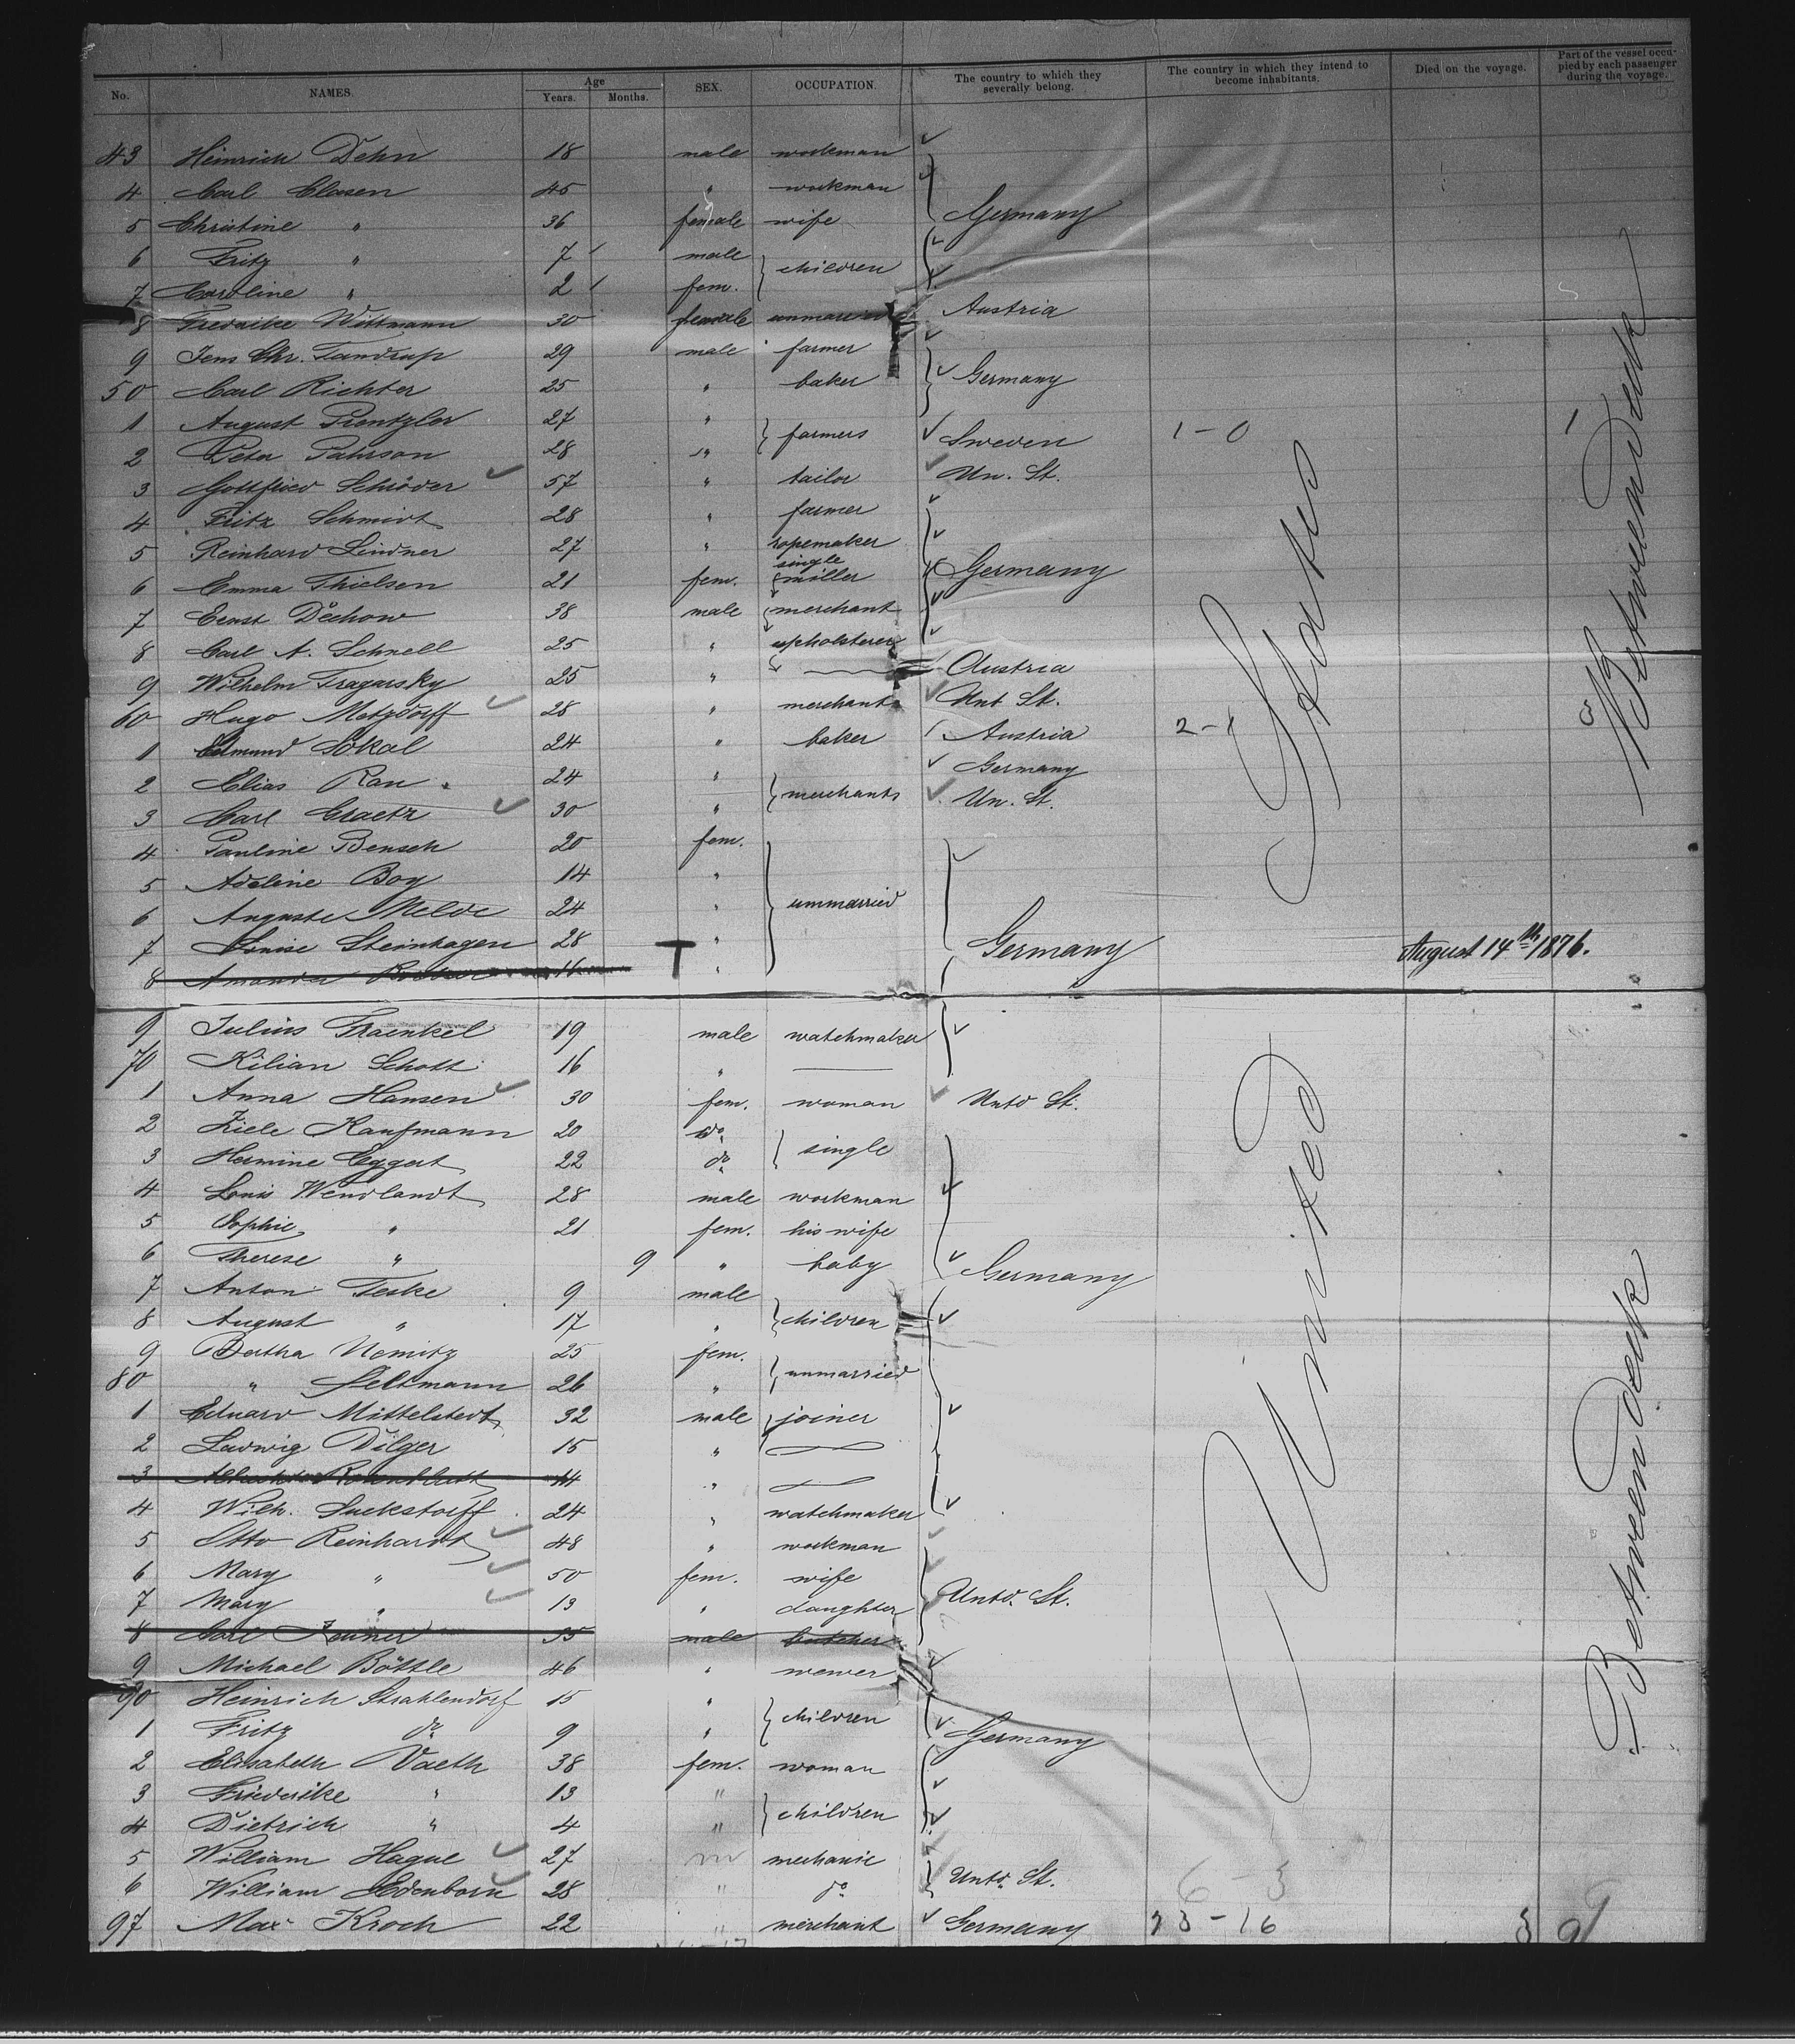 No. NAMES. Age Years. Months. SEX. OCCUPATION. The country to which they severally belong. The country in which they intend to become inhabitants. Died on the voyage. Part of the vessel occupied by each passenger during the voyage.
43 Heinrich Dehn 18 male workman
4 Carl Clasen 45 " workman
5 Christine " 36 female wife Germany
6 Fritz " 7 male } children
7 Caroline " 2 fem.
8 Fredrike Wittmann 30 female unmarried Austria
9 Jens Chr. Tandrup 29 male farmer
50 Carl Richter 25 " baker Germany
1 August 27 " } farmers
2 Peter Pahrson 28 " Sweden 1-0 1
3 Gottfried Schröder 57 " tailor Un. St.
4 Fritz Schmidt 28 " farmer
5 Reinhard Lindner 27 " ropemaker
6 Emma Thielsen 21 fem. single miller Germany
7 Ernst Dechow 38 male merchant
8 Carl A. Schnell 25 " upholsterer
9 Wilhelm Tragarsky 25 " — Austria
60 Hugo Metzdorff 28 " merchant Unt St.
1 Edmund Sokal 24 " baker Austria 2-1 3
2 Elias Rau 24 " } merchants Germany
3 Carl Graetz 30 " Un. St.
4 Pauline Bensch 20 fem.
5 Adeline Boy 14 "
6 Auguste Melde 24 " } unmarried
7 Louise Steinhagen 28 " Germany August 14th 1876.
8 Amanda 16 "
9 Julius Fraenkel 19 male watchmaker
70 Kilian Schott 16 " —
1 Anna Hansen 30 fem. woman Untd St.
2 Ziele Kaufmann 20 do } single
3 Hermine Eggert 22 do
4 Louis Wendlandt 28 male workman
5 Sophie " 21 fem. his wife
6 Therese " 9 " baby Germany
7 Anton Teske 9 male } children
8 August " 17 "
9 Bertha Nemitz 25 fem. } unmarried
80 " Seltmann 26 "
1 Eduard Mittelstedt 32 male joiner
2 Ludwig Dilger 15 " —
3 Rosenblatt 44 " —
4 Wilh. Suckstorff 24 " watchmaker
5 Otto Reinhardt 48 " workman
6 Mary " 50 fem. wife
7 Mary " 13 " daughter Untd. St.
8 Carl 35 male butcher
9 Michael Böttle 46 " wewer
90 Heinrich Strahlendorf 15 " } children
1 Fritz do 9 " Germany
2 Elisabeth Vaeth 38 fem. woman
3 Friederike " 13 " } children
4 Dietrich " 4 "
5 William Hague 27 m mechanic
6 William Edenborn 28 " do Untd. St. 6-3
97 Max Kroch 22 " merchant Germany 23-16 3 9
United States
Between Deck
Between Deck